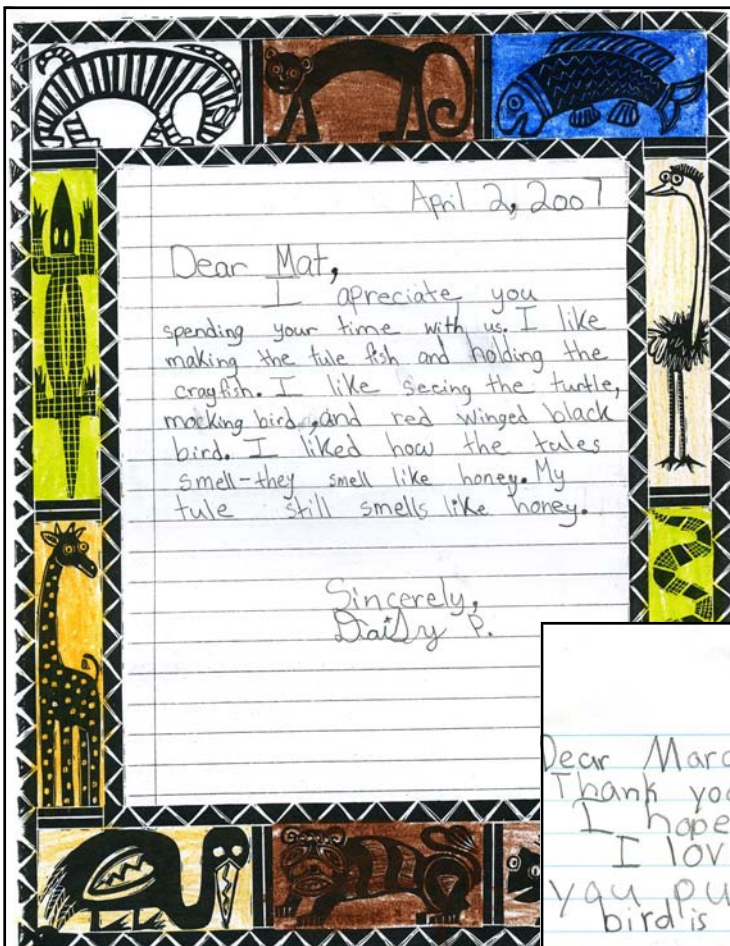 April 2, 2007
Dear Mat,
I apreciate you
spending your time with us. I like
making the tule fish and holding the
crayfish. I like seeing the turtle,
mocking bird, and red winged black
bird. I liked how the tules
smell-they smell like honey. My
tule still smells like honey.
Sincerely,
Daisy P.
Dear Marc
Thank you
I hope
I lov
you pu
bird is